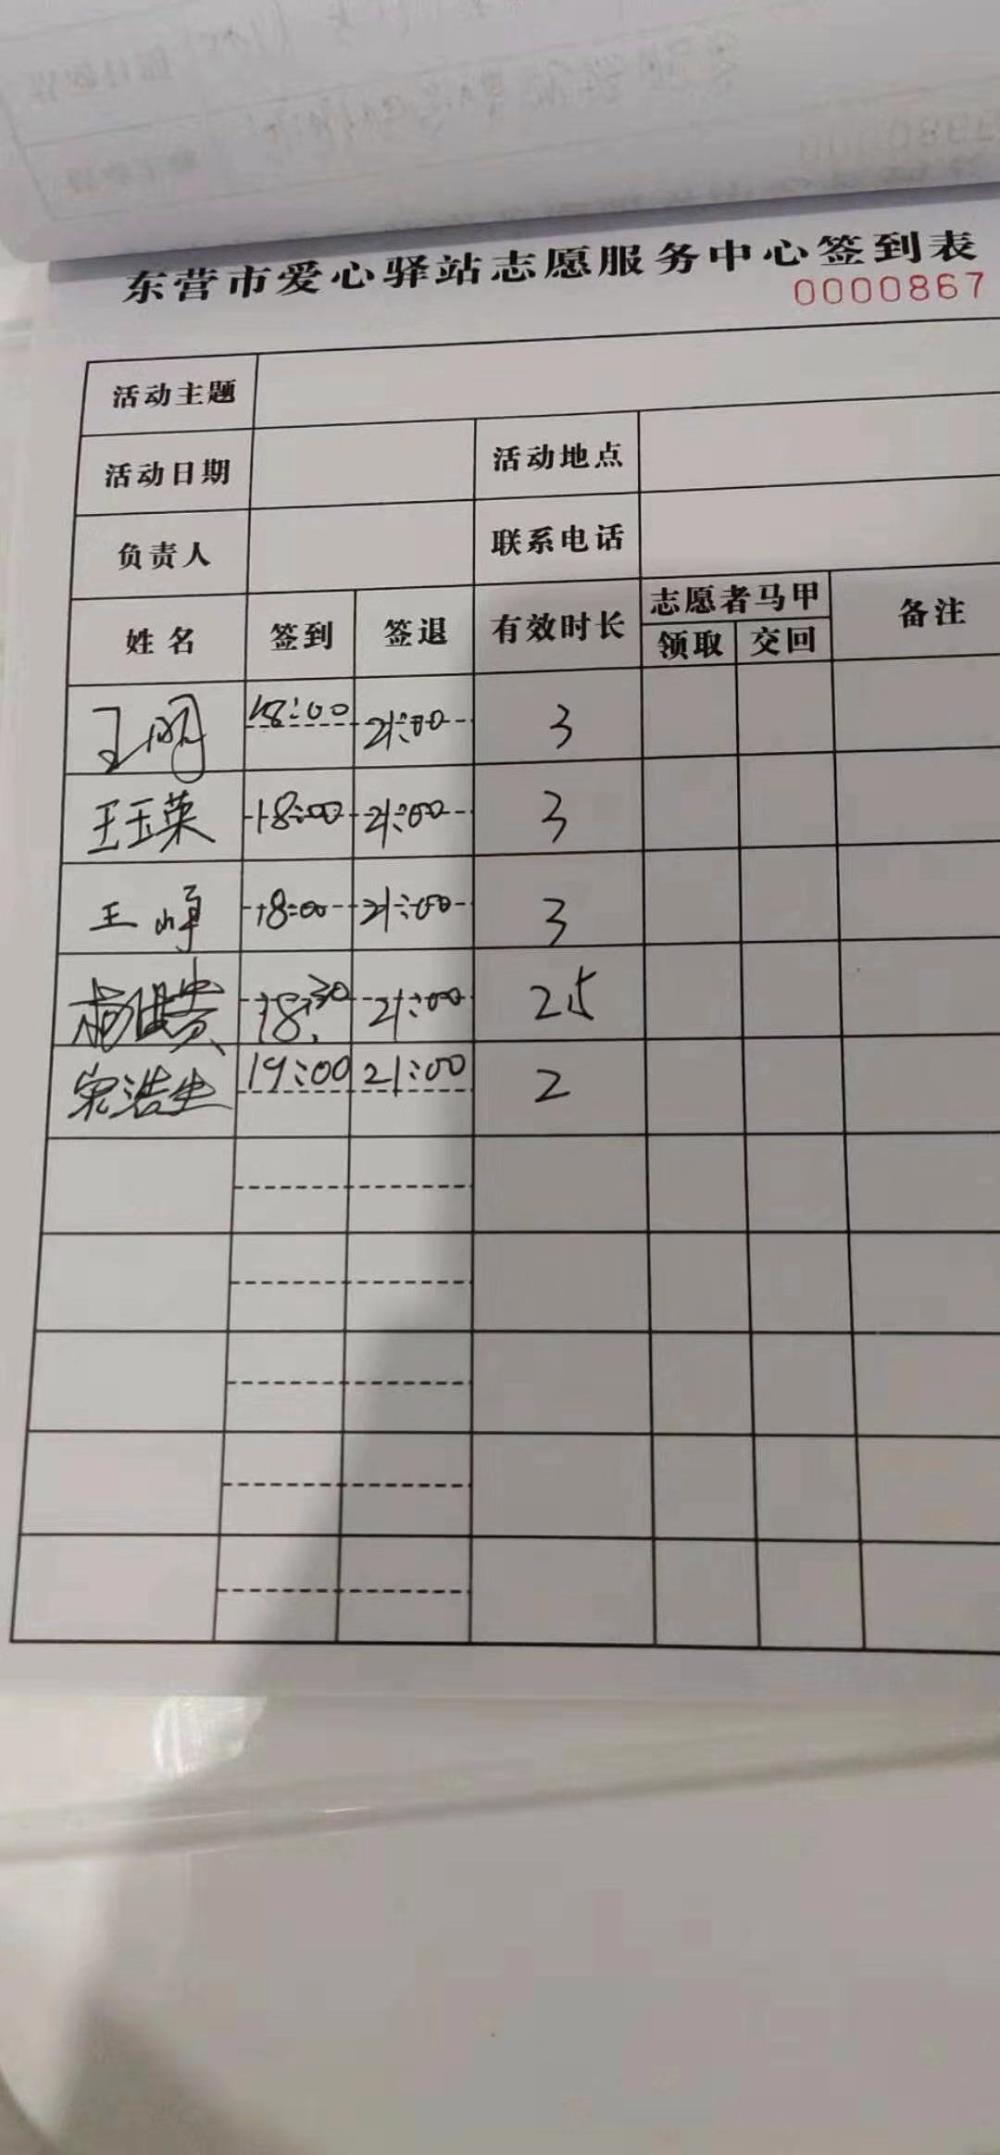 东营市爱心驿站志愿服务中心签到表
0000867
活动主题
活动日期 活动地点
负责人 联系电话
姓名 签到 签退 有效时长 志愿者马甲 备注
领取 交回
王明 18:00 21:00 3
王玉荣 18:00 21:00 3
王 18:00 21:00 3
18:30 21:00 2.5
宋浩生 19:00 21:00 2